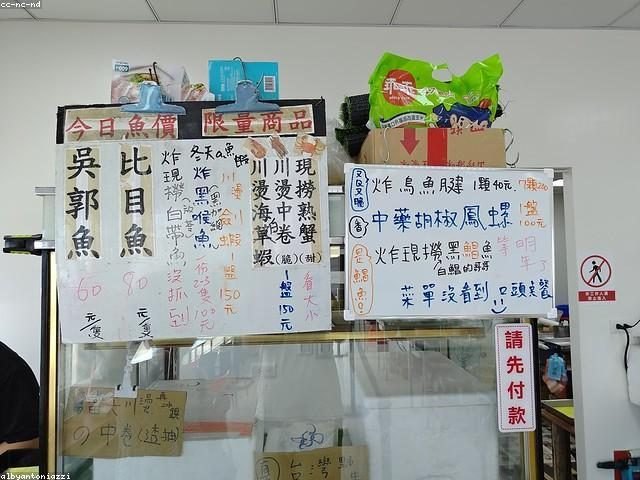 cc-nc-nd
乖乖
今日魚價
限量商品
吳郭魚
60
元/隻
比目魚
80
元/隻
炸現撈白帶魚沒抓到
冬天a魚
炸黑喉魚
100元
川燙劍蝦
1盤150元
川燙海草蝦(脆)
川燙中卷
現撈熟蟹(甜)
1盤150元
看大小
炸烏魚腱 1顆40元
中藥胡椒鳳螺
1盤
100元
炸現撈黑鯧魚
等明年了
白鯧的哥哥
是鯧魚
菜單沒看到 口頭點餐
請先付款
川燙
の中卷(透抽)
台灣
albyantoniazzi